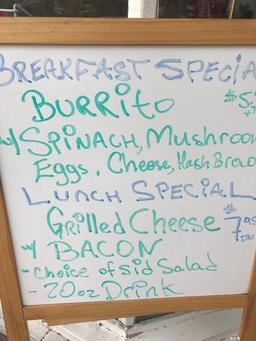 BREAKFAST SPECIA
BURRITO $5.
w/ SPINACH, Mushroom
Eggs, Cheese, Hash Brow
LUNCH SPECIAL
Grilled Cheese $7.95
w/ BACON
- Choice of sid Salad
- 20oz Drink